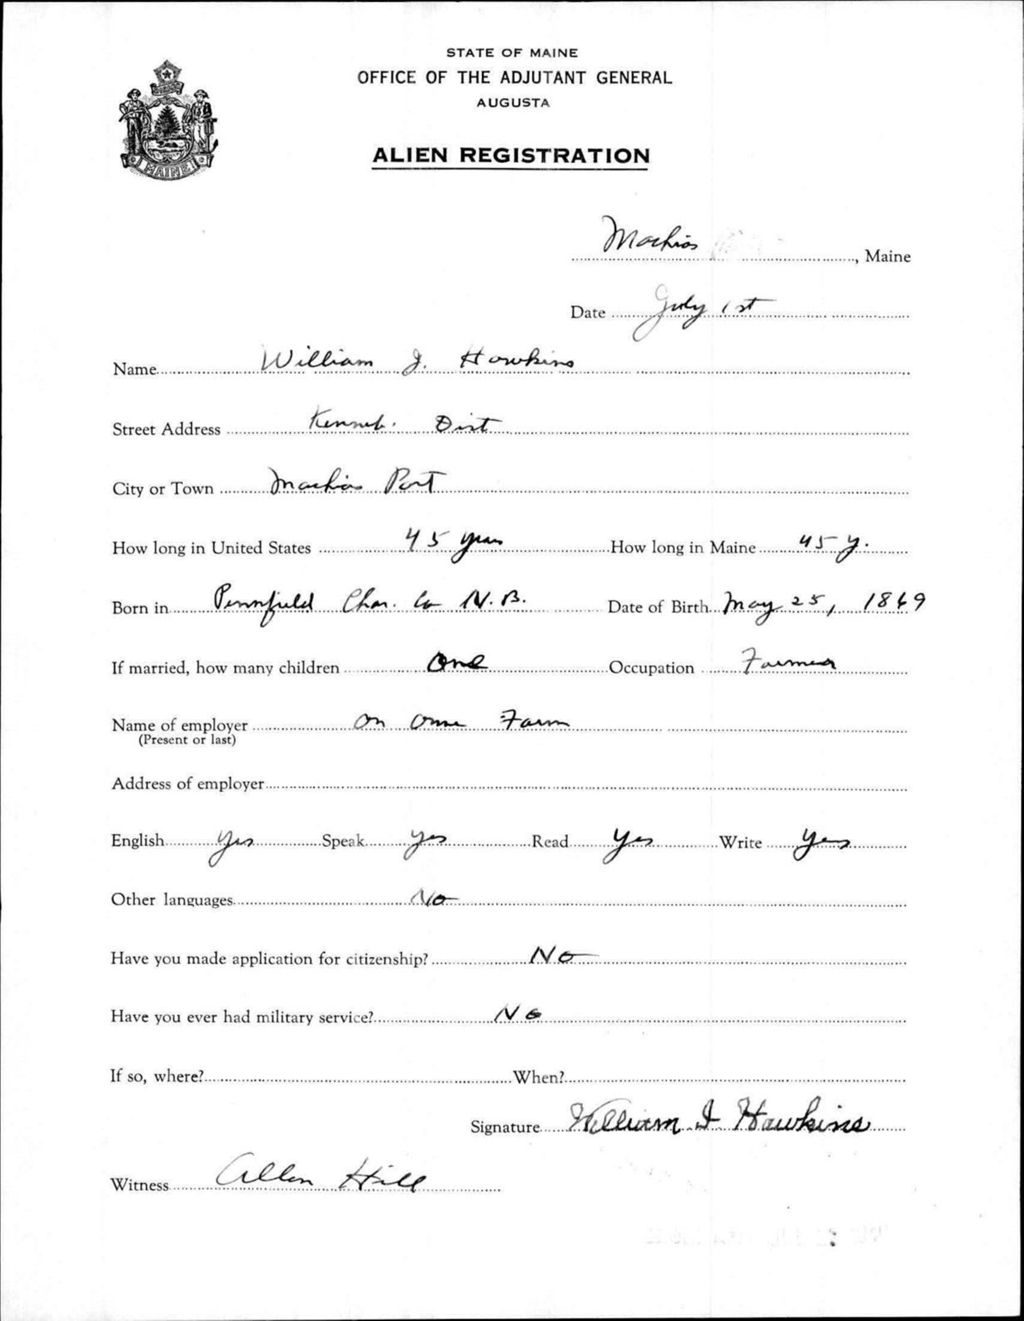 STATE OF MAINE
OFFICE OF THE ADJUTANT GENERAL
AUGUSTA
ALIEN REGISTRATION
MAINE
Machias, Maine
Date July 1st
Name William J. Hawkins
Street Address Kenneb. Dist
City or Town Machias Port
How long in United States 45 years How long in Maine 45 y.
Born in Pennfield Char. Co N.B. Date of Birth May 25, 1869
If married, how many children One Occupation Farmer
Name of employer On Own Farm
(Present or last)
Address of employer
English Yes Speak Yes Read Yes Write Yes
Other languages No
Have you made application for citizenship? No
Have you ever had military service? No
If so, where? When?
Signature William J Hawkins
Witness Allen Hill